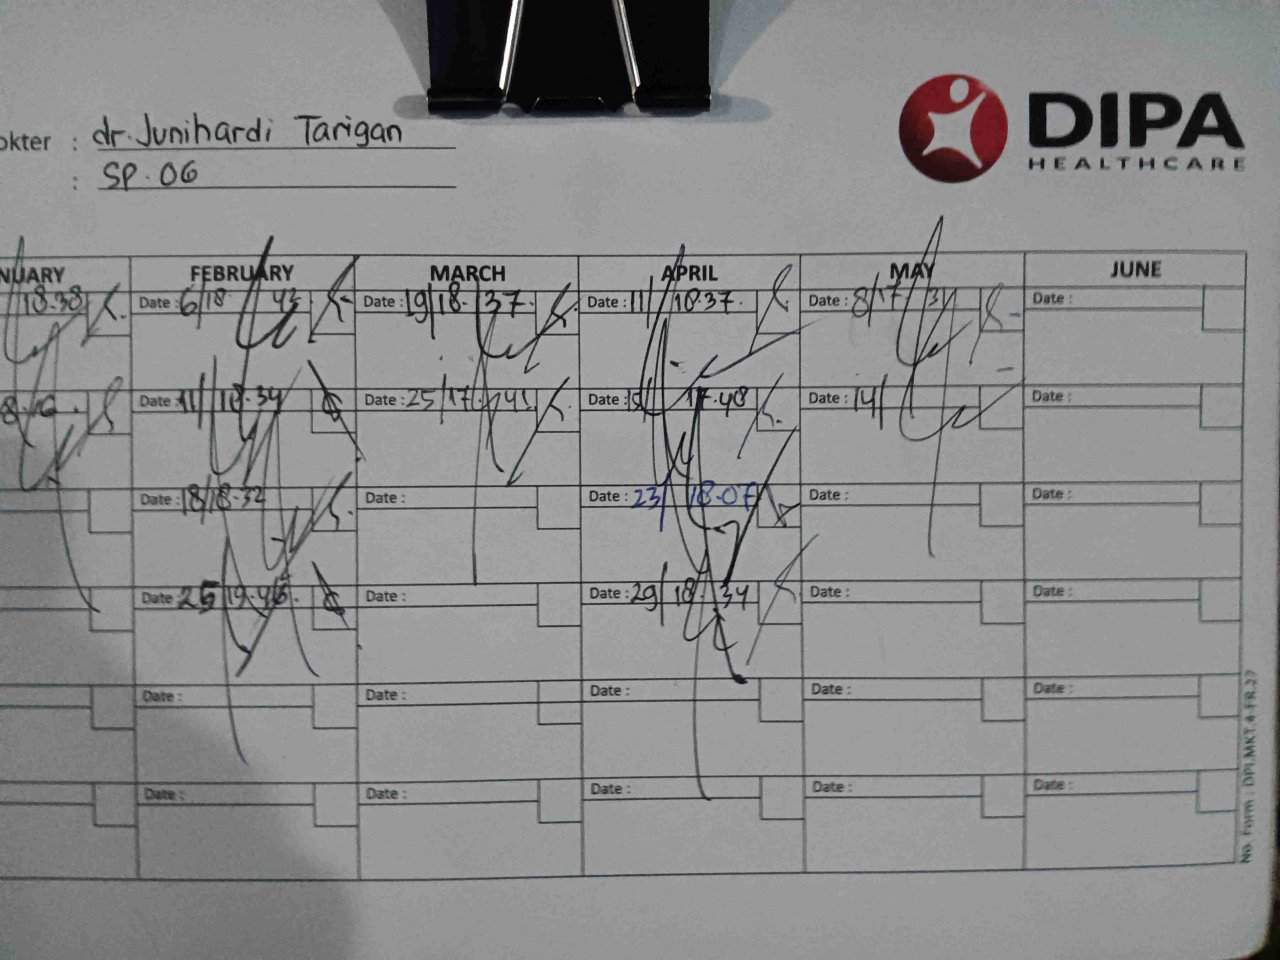 okter : dr. Junihardi Tarigan
: SP. OG
DIPA
HEALTHCARE
NUARY FEBRUARY MARCH APRIL MAY JUNE
18.38 Date : 6/18 43 Date : 19/18. 37. Date : 11/ 18.37. Date : 8/17 Date :
Date : 11/ 18.34 Date : 25/17. 41 Date : 17.48 Date : 14/ Date :
Date : 18/18.32 Date : Date : 23/ 18.07 Date : Date :
Date : 25 19.46. Date : Date : 29/ 18. 34 Date : Date :
Date : Date : Date : Date : Date :
Date : Date : Date : Date : Date :
No. Form : DPI.MKT.4-FR.27